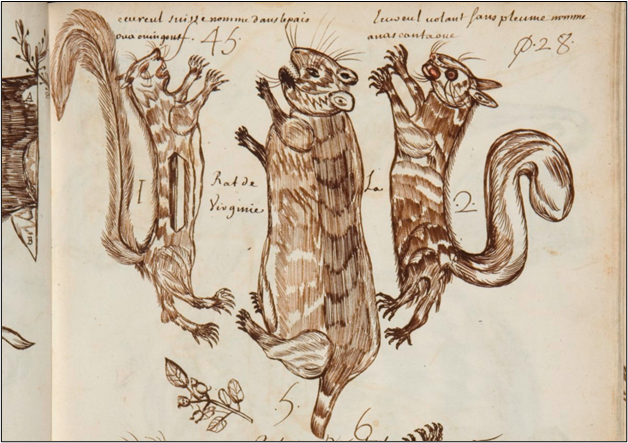 escureul suisse nomme dans le pais
oua ouingouf. 45.
Escureul volant sans pleume nomme
anas cantaoue
P. 28.
A
B
I
Rat de
Virginie
La
2.
5.
6